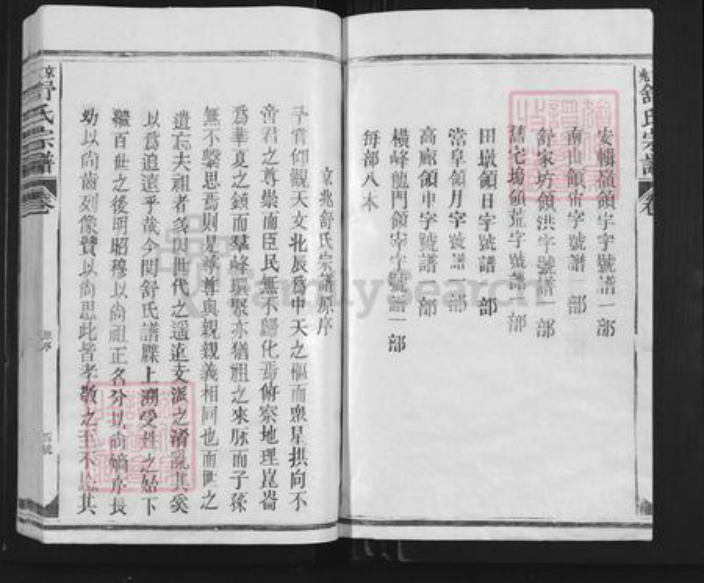 安輯嶺領宇字號譜一部
南山領宙字號譜一部
舒家坊領洪字號譜一部
舊宅塲領荒字號譜一部
田墩領日字號譜一部
當阜領月字號譜一部
高廠領申字號譜一部
橫峰龍門領宰字號譜一部
每部八本
京兆舒氏宗譜原序
予嘗仰觀天文北辰爲中天之樞而衆星拱向不
帝君之尊崇而臣民無不歸化焉俯察地理崑崙
爲華夏之鎮而羣峰環聚亦猶祖之來脉而子孫
無不繫思焉則是尊尊與親親義相同也而世之
遺忘夫祖者多因世代之遥遠支派之淆亂其奚
以爲追遠乎哉今閱舒氏譜牒上溯受姓之始下
繼百世之後明昭穆以尚祖正名分以尚嫡序長
幼以尚齒列像賛以尚思此皆孝敬之至不忘其
京兆舒氏宗譜
卷
原序
四號
舒氏宗譜
卷
FamilySearch